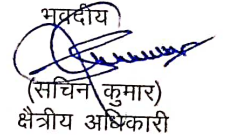 भवदीय
(सचिन कुमार)
क्षेत्रीय अधिकारी